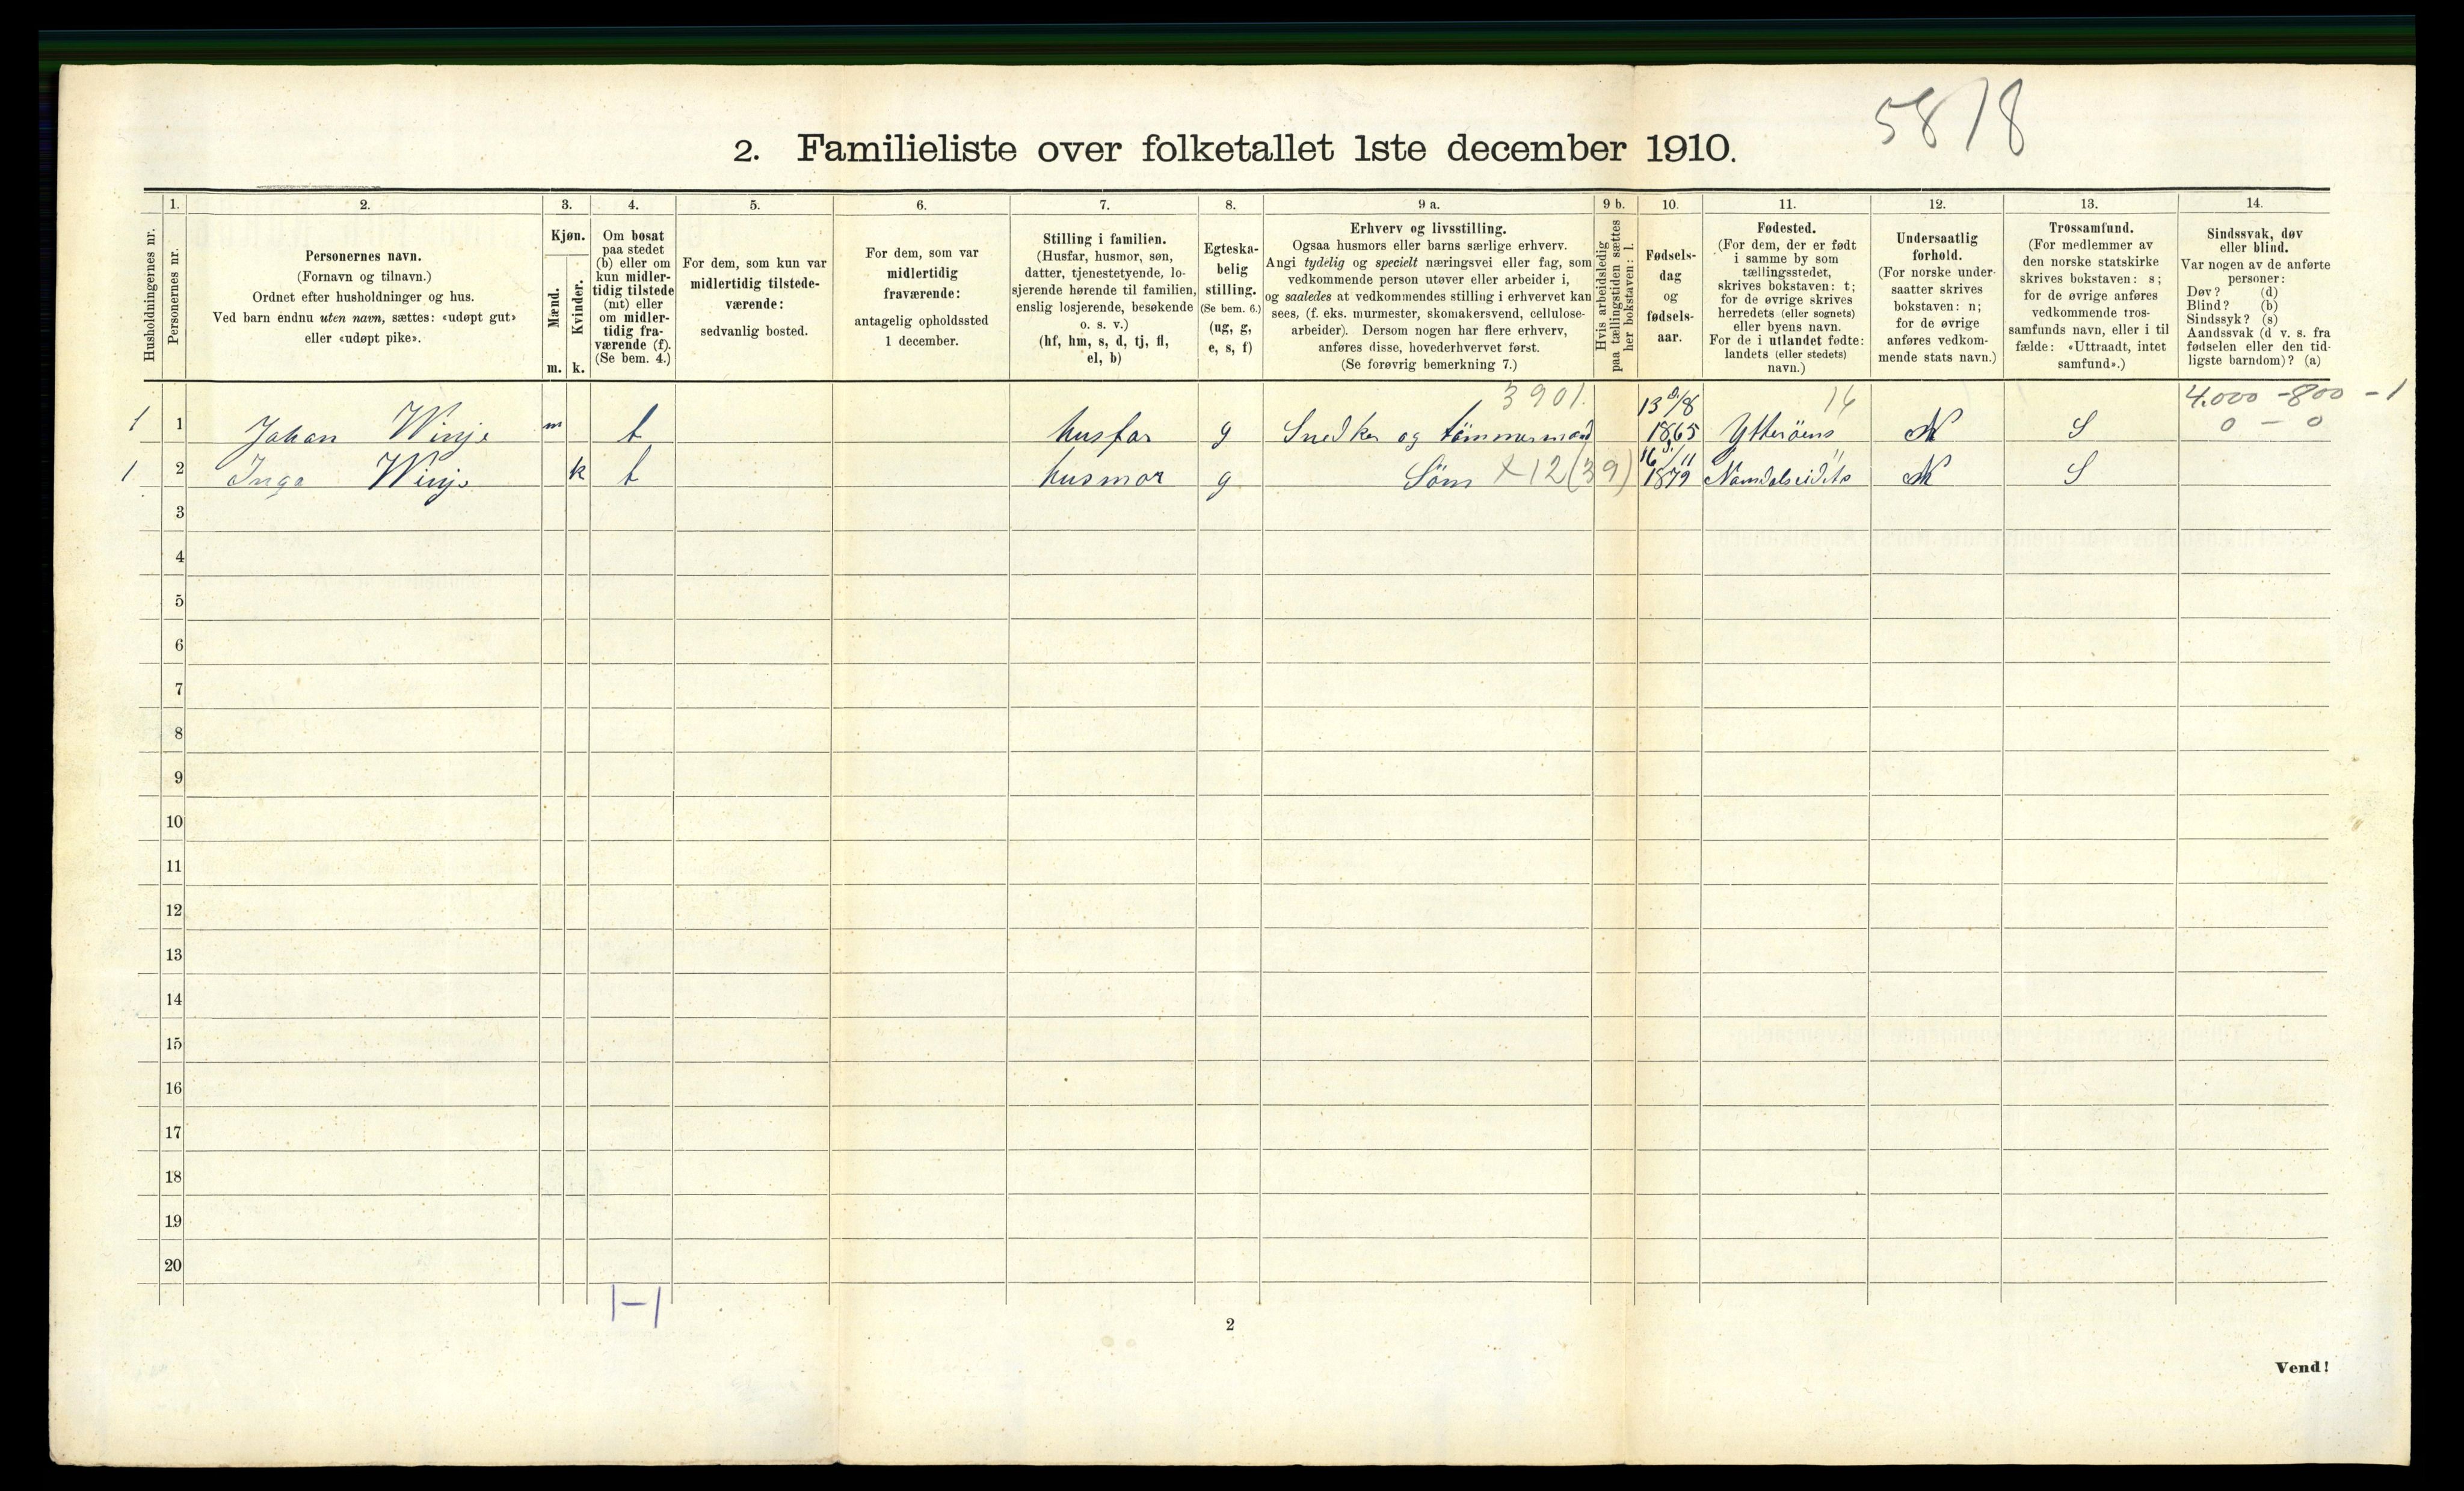 5818
2. Familieliste over folketallet 1ste december 1910.
1. 2. 3. 4. 5. 6. 7. 8. 9 a. 9 b. 10. 11. 12. 13. 14.
Husholdningernes nr.
Personernes nr.
Personernes navn.
(Fornavn og tilnavn.)
Ordnet efter husholdninger og hus.
Ved barn endnu uten navn, sættes: «udøpt gut»
eller «udøpt pike».
Kjøn.
Mænd.
Kvinder.
m. k.
Om bosat
paa stedet
(b) eller om
kun midler-
tidig tilstede
(mt) eller
om midler-
tidig fra-
værende (f).
(Se bem. 4.)
For dem, som kun var
midlertidig tilstede-
værende:
sedvanlig bosted.
For dem, som var
midlertidig
fraværende:
antagelig opholdssted
1 december.
Stilling i familien.
(Husfar, husmor, søn,
datter, tjenestetyende, lo-
sjerende hørende til familien,
enslig losjerende, besøkende
o. s. v.)
(hf, hm, s, d, tj, fl,
el, b)
Egteska-
belig
stilling.
(Se bem. 6.)
(ug, g,
e, s, f)
Erhverv og livsstilling.
Ogsaa husmors eller barns særlige erhverv.
Angi tydelig og specielt næringsvei eller fag, som
vedkommende person utøver eller arbeider i,
og saaledes at vedkommendes stilling i erhvervet kan
sees, (f. eks. murmester, skomakersvend, cellulose-
arbeider). Dersom nogen har flere erhverv,
anføres disse, hovederhvervet først.
(Se forøvrig bemerkning 7.)
Hvis arbeidsledig
paa tællingstiden sættes
her bokstaven: l.
Fødsels-
dag
og
fødsels-
aar.
Fødested.
(For dem, der er født
i samme by som
tællingsstedet,
skrives bokstaven: t;
for de øvrige skrives
herredets (eller sognets)
eller byens navn.
For de i utlandet fødte:
landets (eller stedets)
navn.)
Undersaatlig
forhold.
(For norske under-
saatter skrives
bokstaven: n;
for de øvrige
anføres vedkom-
mende stats navn.)
Trossamfund.
(For medlemmer av
den norske statskirke
skrives bokstaven: s;
for de øvrige anføres
vedkommende tros-
samfunds navn, eller i til
fælde: «Uttraadt, intet
samfund».)
Sindssvak, døv
eller blind.
Var nogen av de anførte
personer:
Døv? (d)
Blind? (b)
Sindssyk? (s)
Aandssvak (d v. s. fra
fødselen eller den tid-
ligste barndom)? (a)
3901. 16 4.000 - 800 - 1
1 1 Johan Winje m b husfar g Snedker og tömmermand 13/8 1865 Ytteröens N S 0 - 0
1 2 Inga Winje k b husmor g Söm x 12 (39) 16/11 1879 Namdalseidets " N S
3
4
5
6
7
8
9
10
11
12
13
14
15
16
17
18
19
20
1-1
2
Vend!